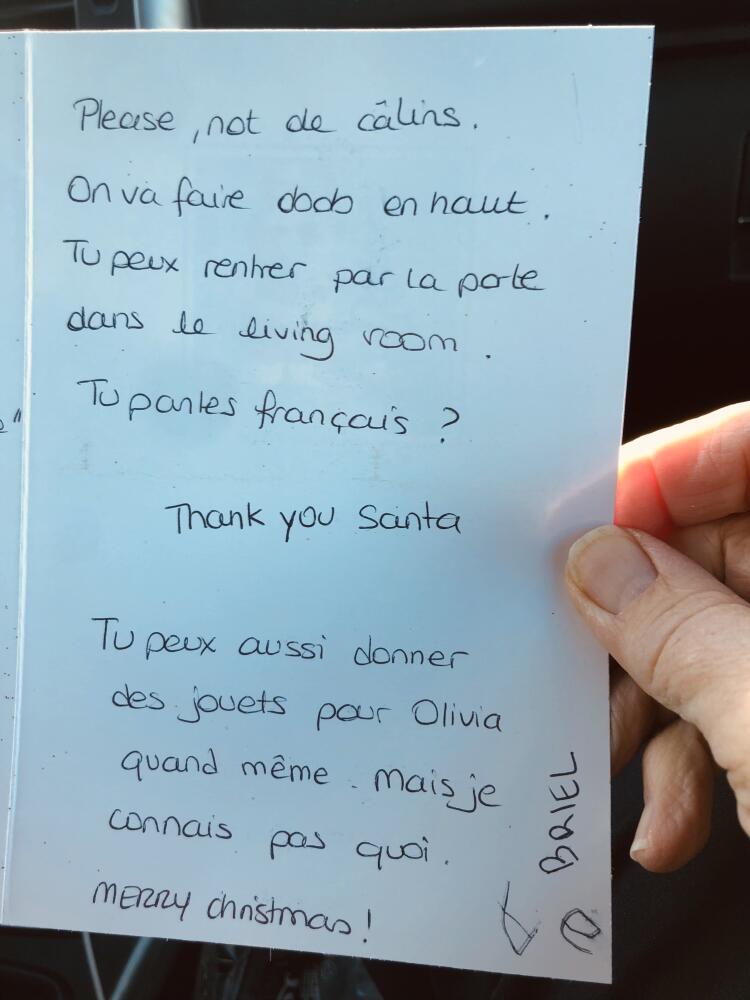 Please, not de câlins.
On va faire dodo en haut.
Tu peux rentrer par la porte
dans le living room.
Tu parles français ?
Thank you Santa
Tu peux aussi donner
des jouets pour Olivia
quand même. Mais je
connais pas quoi.
MERRY christmas!
BRIEL